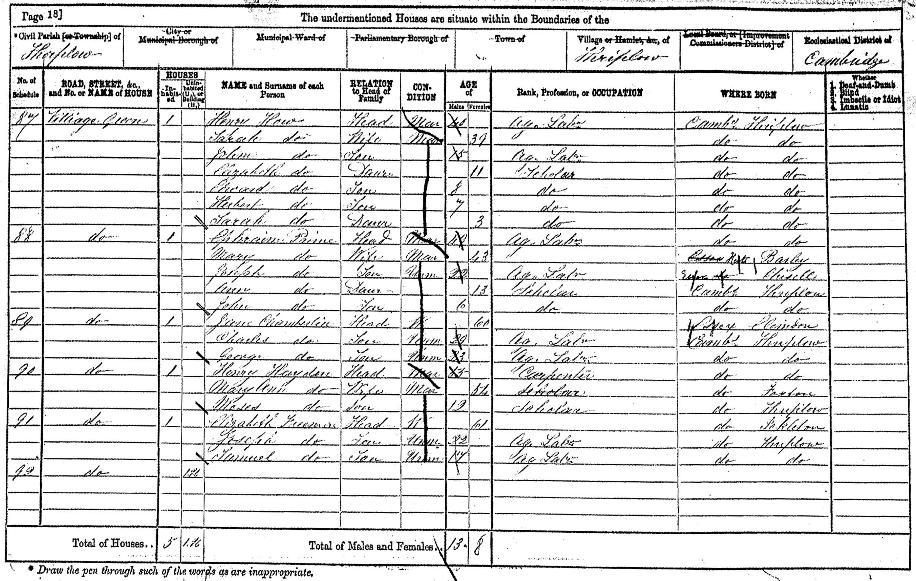 Page 18]
The undermentioned Houses are situate within the Boundaries of the
*Civil Parish [or Township] of
City or Municipal Borough of
Municipal Ward of
Parliamentary Borough of
Town of
Village or Hamlet, &c., of
Local Board, or [Improvement Commissioners District] of
Ecclesiastical District of
Thriplow
Thriplow
Cambridge
No. of Schedule
ROAD, STREET, &c., and No. or NAME of HOUSE
HOUSES
Inhabited
Uninhabited (U.), or Building (B.)
NAME and Surname of each Person
RELATION to Head of Family
CONDITION
AGE of
Males
Females
Rank, Profession, or OCCUPATION
WHERE BORN
Whether
1. Deaf-and-Dumb
2. Blind
3. Imbecile or Idiot
4. Lunatic
87 Village Green 1 Henry How Head Mar 40 Ag. Labr Cambs Thriplow
Sarah do Wife Mar 39 do do
John do Son 15 Ag. Labr do do
Elizabeth do Daur 11 Scholar do do
Edward do Son 8 do do do
Herbert do Son 7 do do do
Sarah do Daur 3 do do do
88 do 1 Ephraim Prime Head Mar Ag. Labr do do
Mary do Wife Mar 43 Barley
Joseph do Son Unm 22 Ag. Labr
Ann do Daur 13 Scholar Cambs Thriplow
John do Son 6 do do do
89 do 1 Jane Chamberlin Head W 60
Charles do Son Unm 29 Ag. Labr Cambs Thriplow
George do Son Unm 23 Ag. Labr do do
90 do 1 Henry Haydon Head Mar Carpenter do do
Mary Ann do Wife Mar Scholar do Foxton
Moses do Son 12 Scholar do Thriplow
91 do 1 Elizabeth Freeman Head W 61 do
Joseph do Son Unm 22 Ag. Labr do Thriplow
Samuel do Son Unm 17 Ag Labr do do
92 do
Total of Houses.. 5
Total of Males and Females.. 13 8
* Draw the pen through such of the words as are inappropriate.